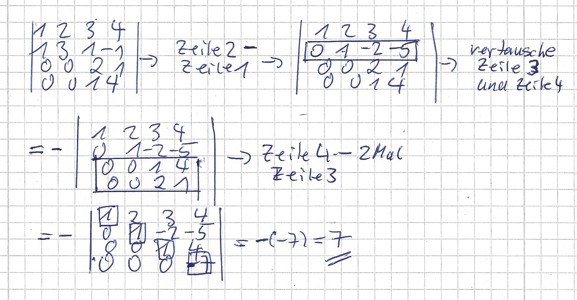 |1 2 3 4| |1 2 3 4|
|1 3 1 -1| → Zeile 2 - → |0 1 -2 -5| → vertausche
|0 0 2 1| Zeile 1 |0 0 2 1| Zeile 3
|0 0 1 4| |0 0 1 4| und Zeile 4
|1 2 3 4|
= - |0 1 -2 -5| → Zeile 4 - 2 Mal
|0 0 1 4| Zeile 3
|0 0 2 1|
|1 2 3 4|
= - |0 1 -2 -5| = -(-7) = 7
|0 0 1 4|
|0 0 0 -7|